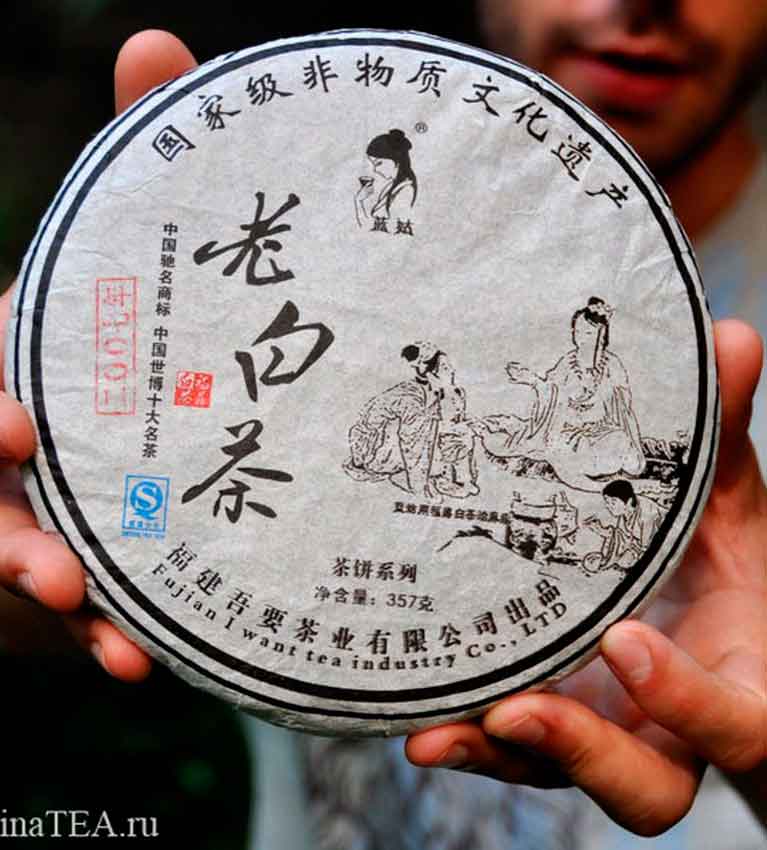 国家级非物质文化遗产
®
蓝姑
老白茶
中国驰名商标 中国世博十大名茶
茶饼系列
净含量：357克
福建吾要茶业有限公司出品
Fujian I want tea industry Co., LTD
inaTEA.ru